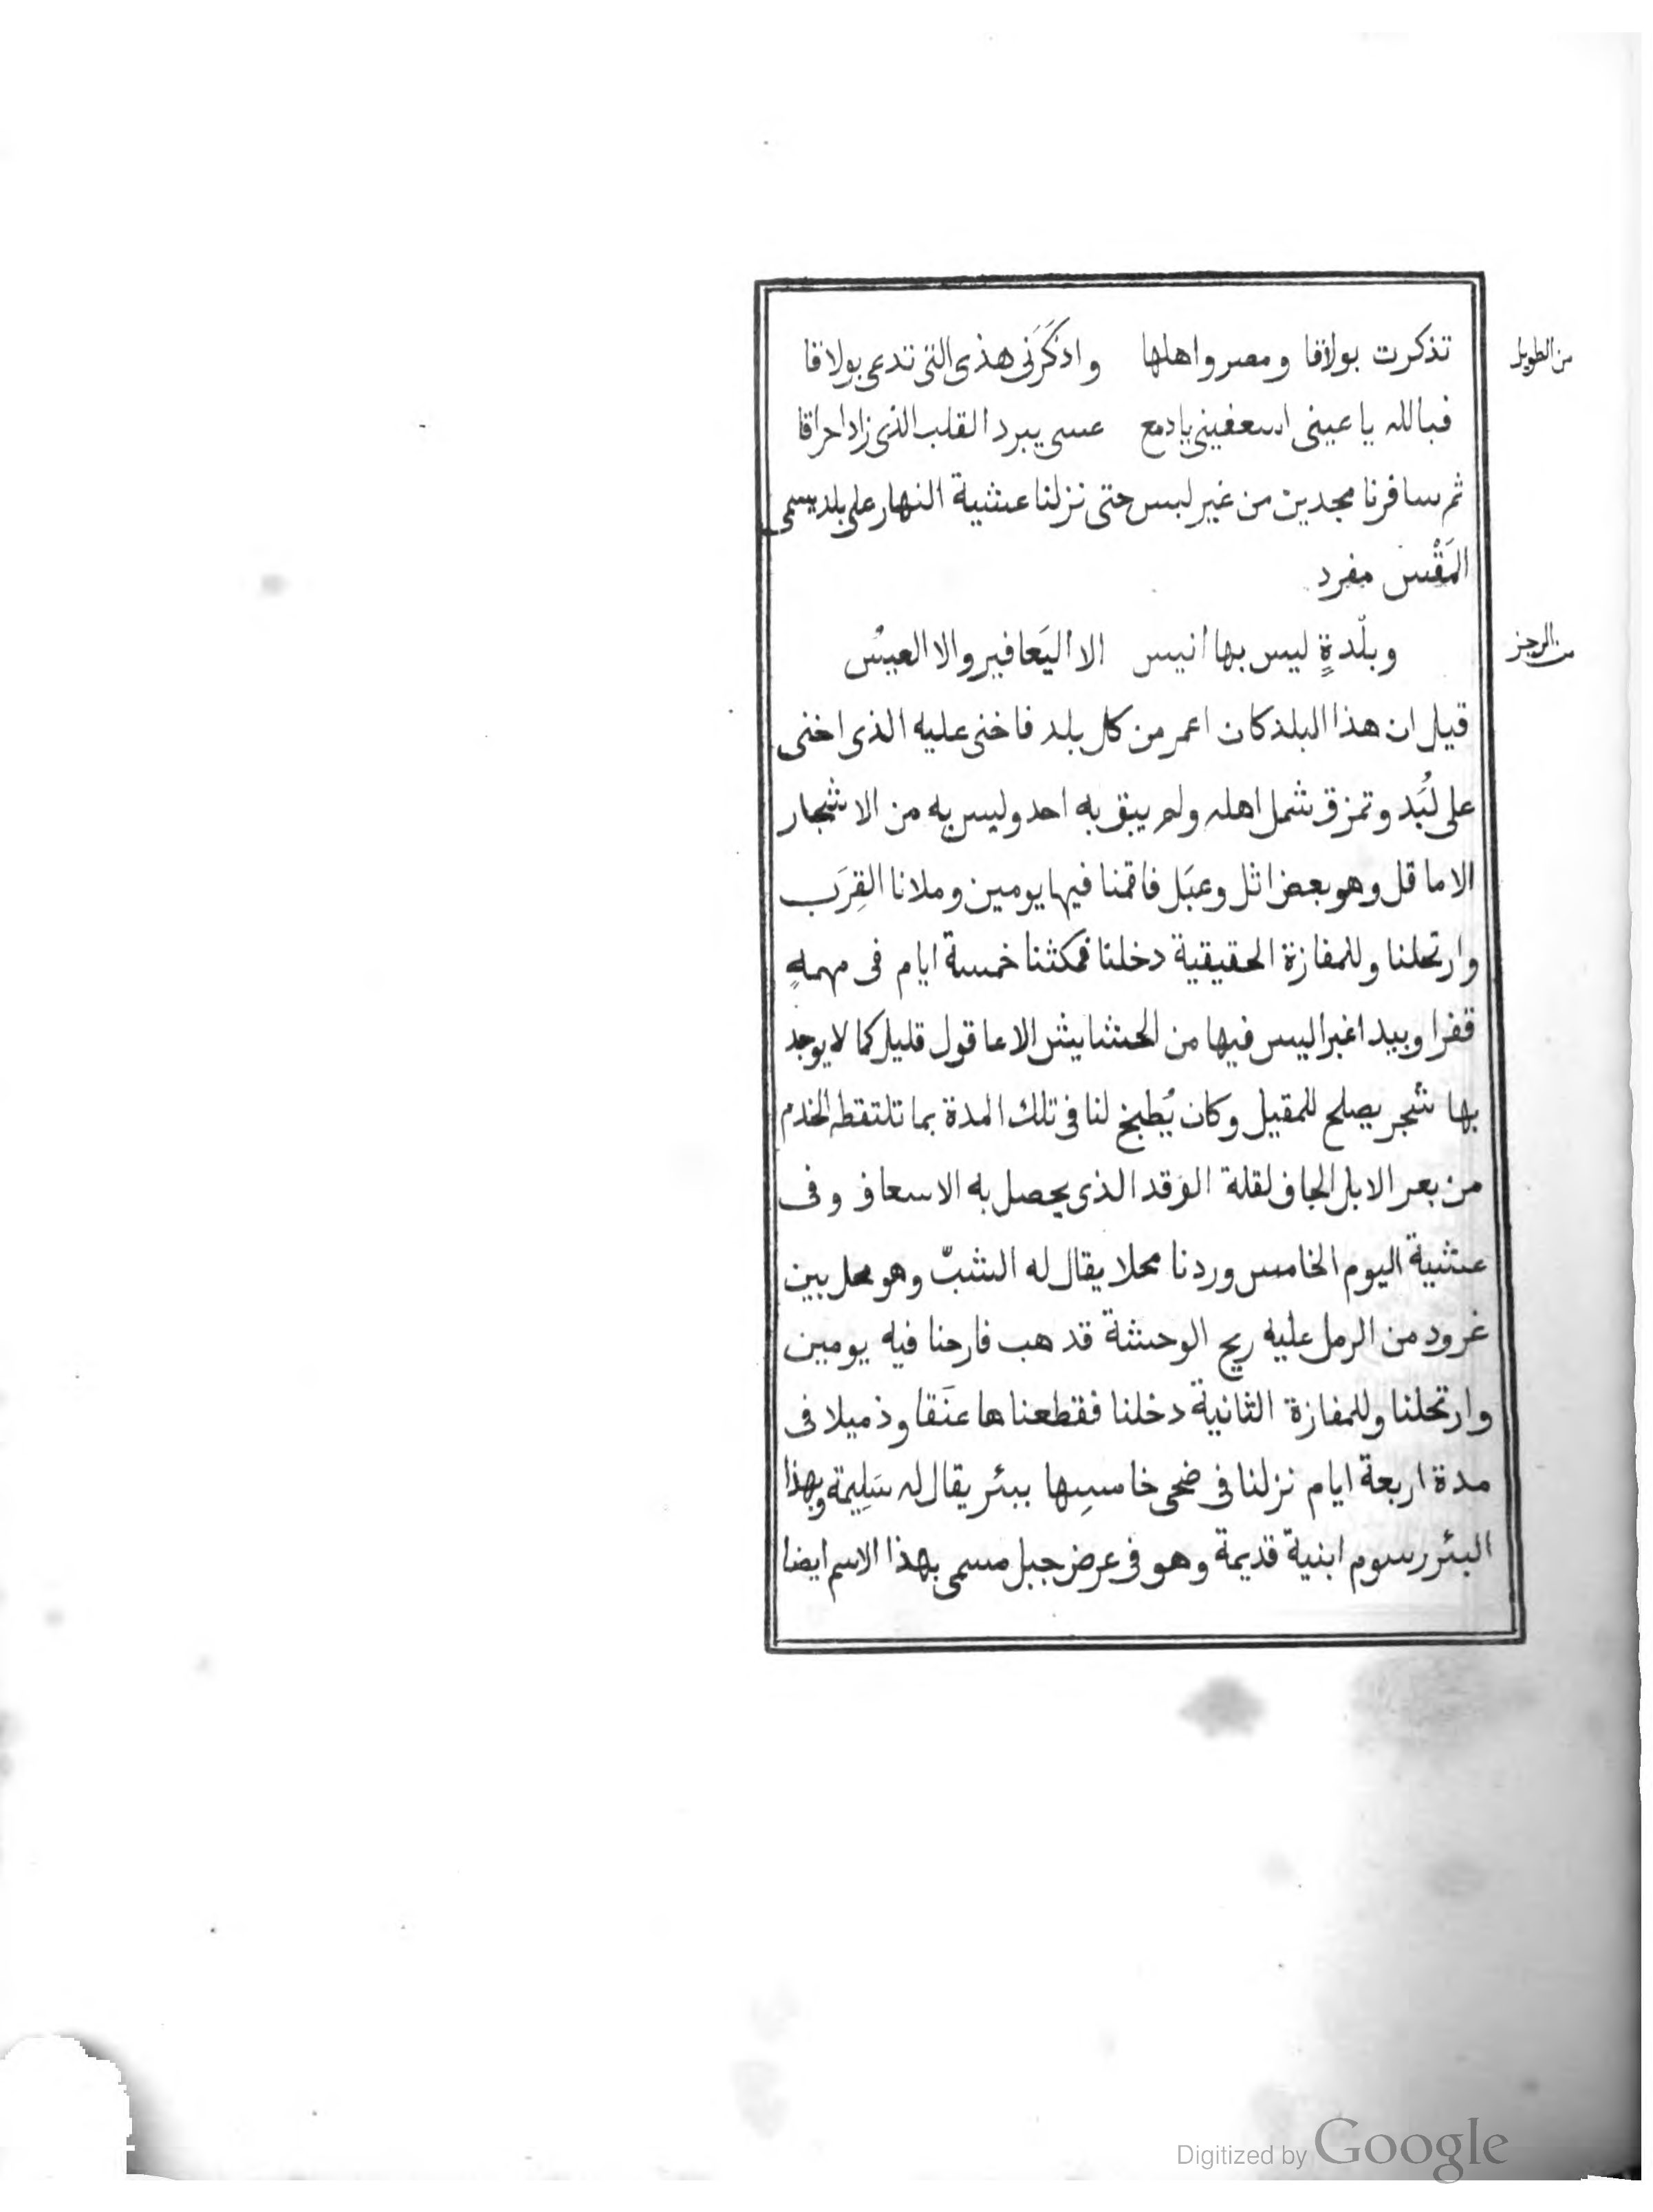 من الطويل
تذكرت بولاقا ومصر واهلها واذكَرَنى هذى التى تدعى بولاقا
فبالله يا عينى اسعفينى يادمع عسى يبرد القلب الذى زاد احراقا
ثم سافرنا مجدين من غير لبس حتى نزلنا عشية النهار على بلد يسمى
المَقْس مفرد
من الرجز
وبلْدةٍ ليس بها أنيس الا اليَعافير والا العيسُ
قيل ان هذا البلد كان اعمر من كل بلد فاخنى عليه الذى اخنى
على لُبَد وتمزق شمل اهله ولم يبق به احد وليس به من الاشجار
الا ما قل وهو بعض اثل وعبَل فاقمنا فيها يومين وملانا القِرَب
وارتحلنا وللمفازة الحقيقية دخلنا فمكثنا خمسة ايام فى مهمهٍ
قفرا وبيدا غبرا ليس فيها من الحشايش الا عاقول قليل كما لا يوجد
بها شجر يصلح للمقيل وكان يُطبخ لنا فى تلك المدة بما تلتقطه الخدم
من بعر الابل الجاف لقلة الوَقد الذى يحصل به الاسعاف وفى
عشية اليوم الخامس وردنا محلا يقال له الشبّ وهو محل بين
غرود من الرمل عليه ريح الوحشة قد هب فارحنا فيه يومين
وارتحلنا وللمفازة الثانية دخلنا فقطعناها عنَقا وذميلا فى
مدة اربعة ايام نزلنا فى ضحى خامسِها ببئر يقال له سَلِيمة وبهذا
البئر رسوم ابنية قديمة وهو فى عرض جبل مسمى بهذا الاسم ايضا
Digitized by Google